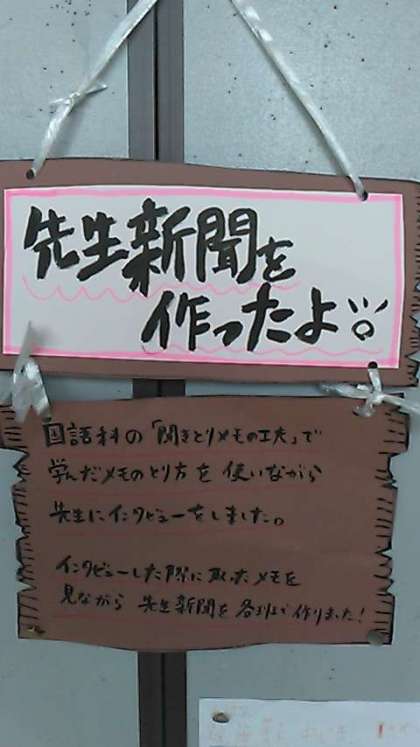 先生新聞を
作ったよ。
国語科の「聞きとりメモの工夫」で
学んだメモのとり方を使いながら
先生にインタビューをしました。
インタビューした際に取ったメモを
見ながら 先生新聞を各班で作りました!